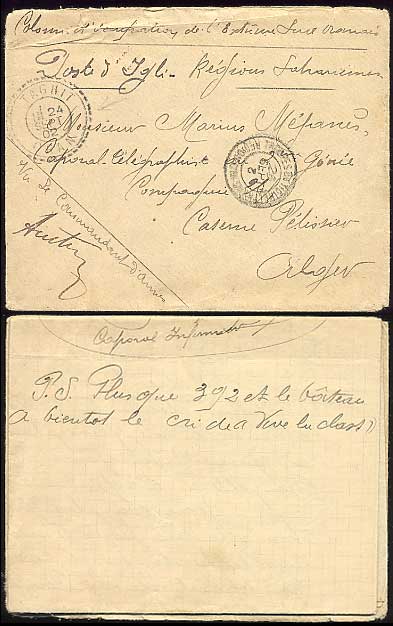 Colonne d'occupation de l'Extrême Sud Oranais
Poste d'Igli - Régions Sahariennes
TAGHIT
24
SEPT
02
Monsieur Marius Mépanès,
Caporal télégraphiste Génie
Compagnie
Caserne Pélissier
Alger
Vu Le Commandant d'armes
Caporal Infirmier
P.S. Plus que 392 et le bâteau
a bientot le cri de a Vive la class))